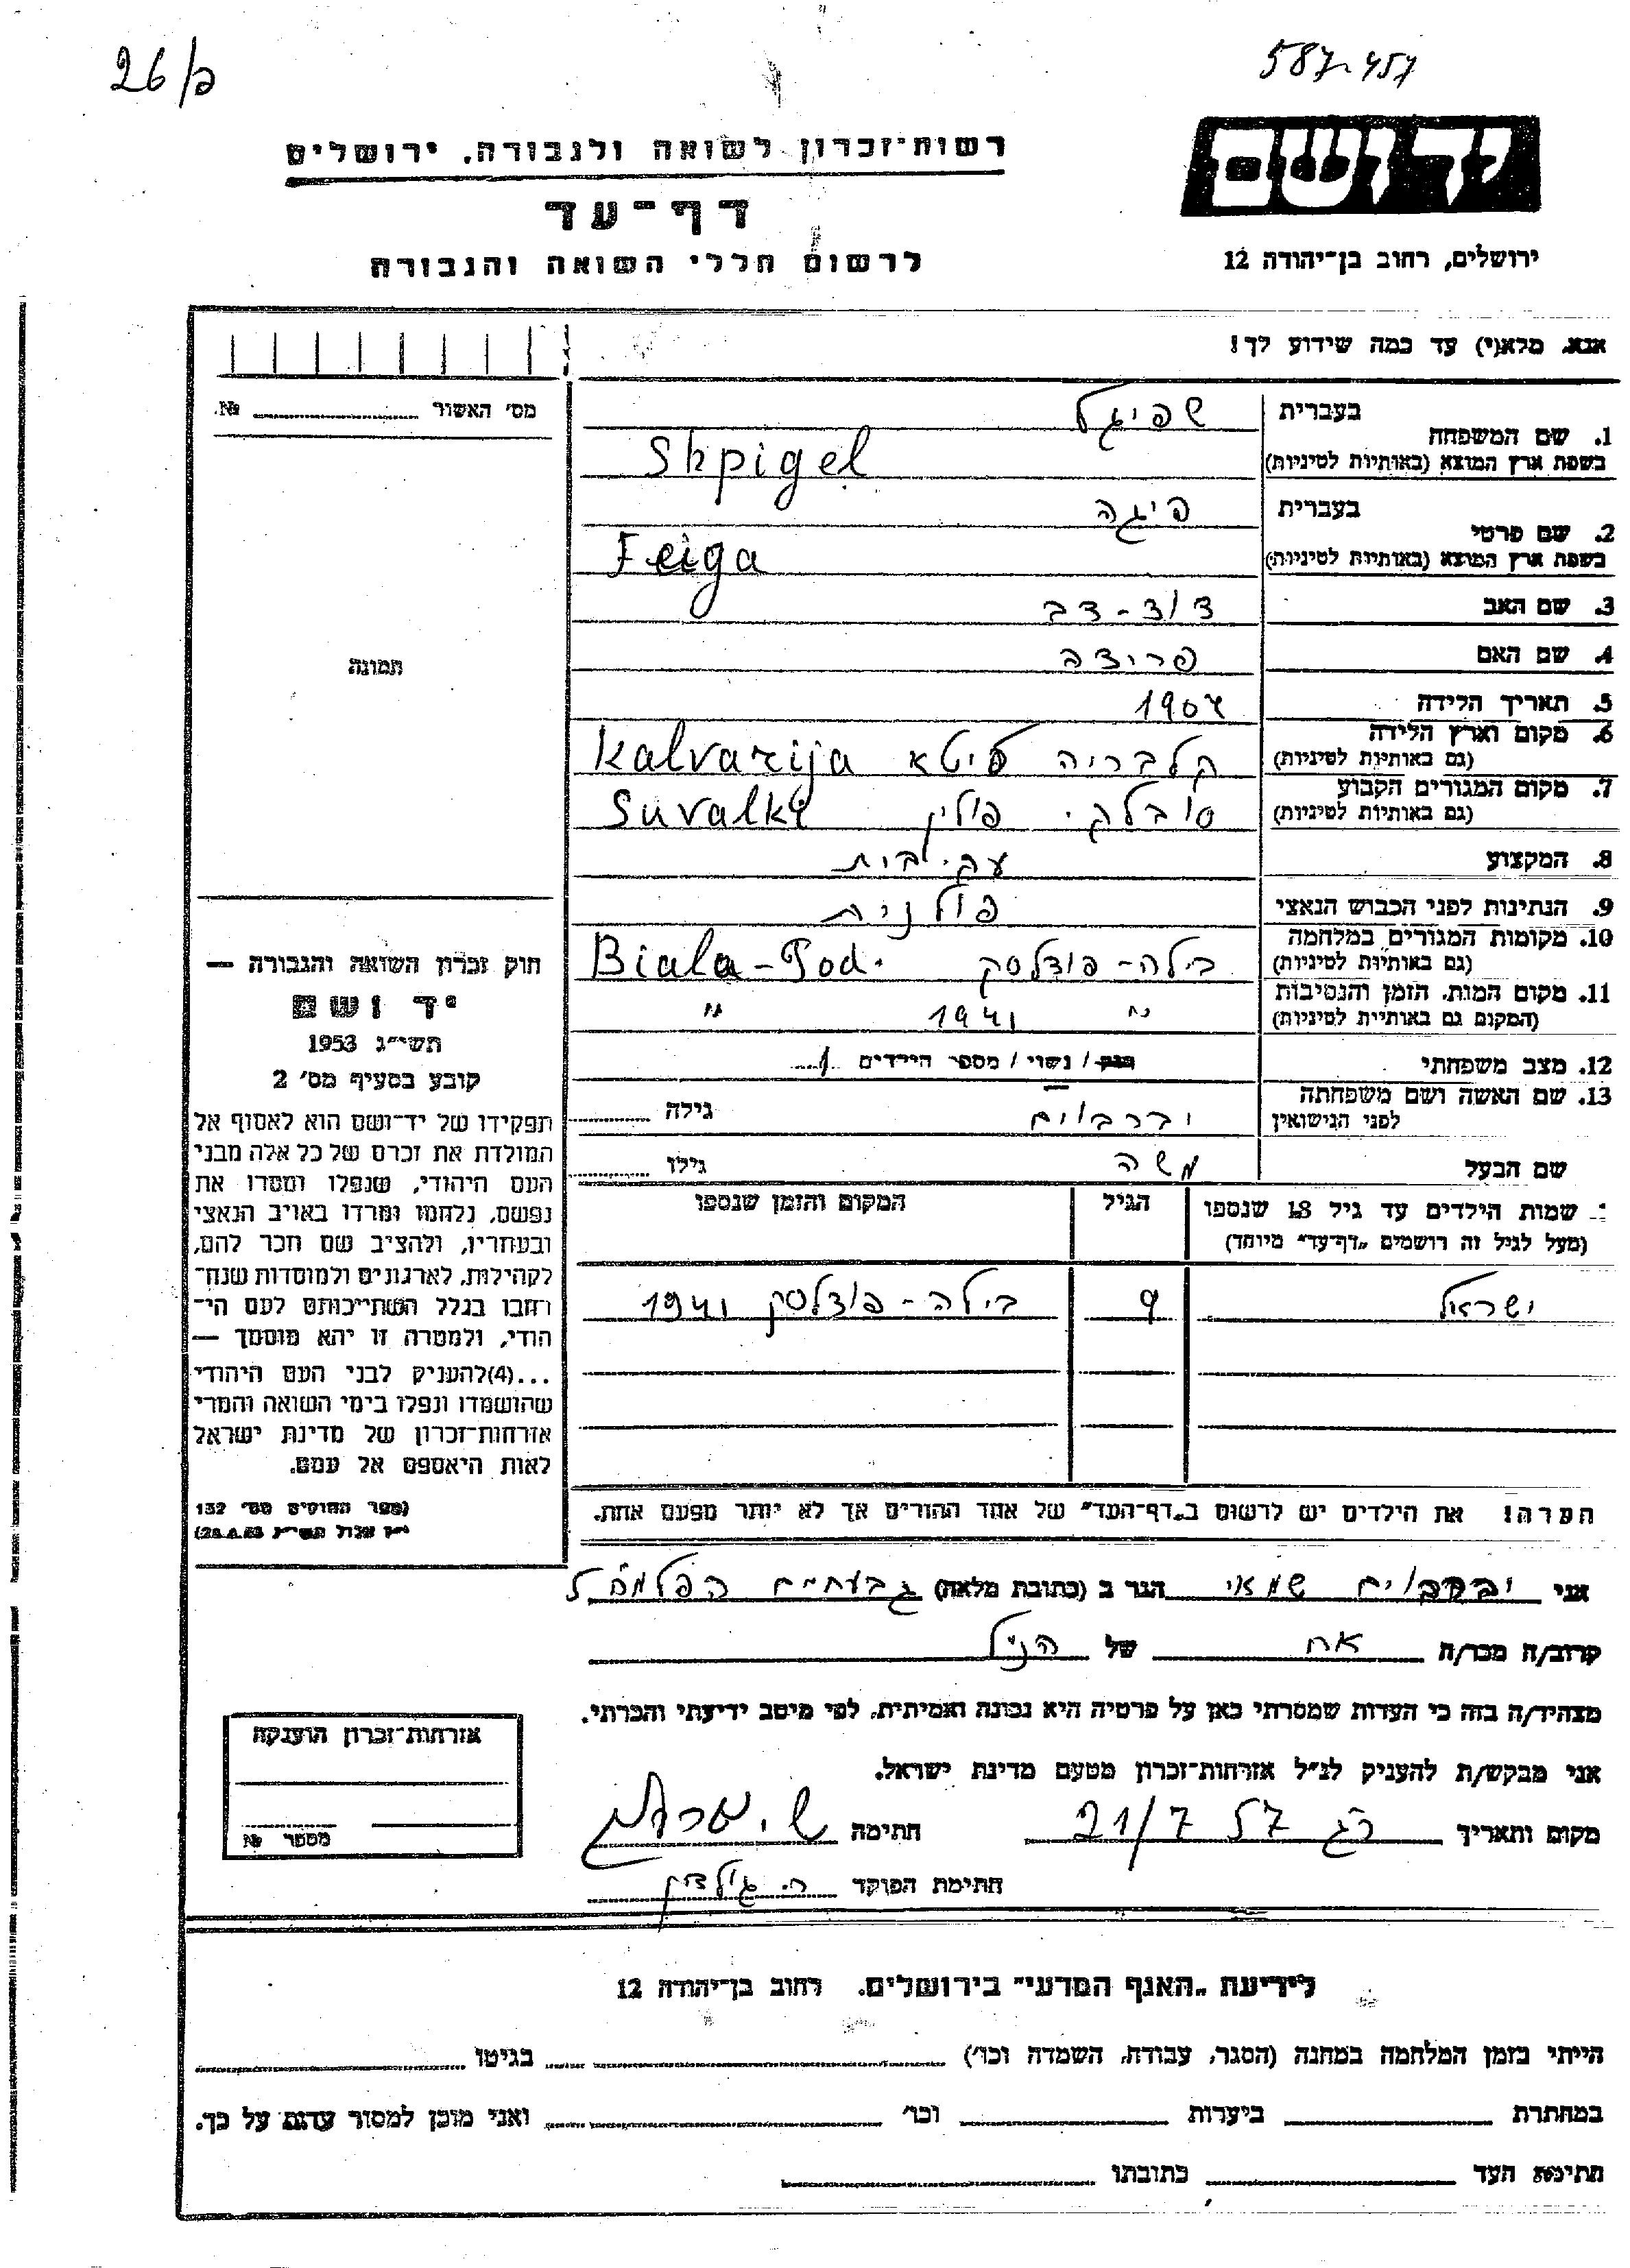 26/פ
587-457
רשות־זכרון לשואה ולגבורה. ירושלים
יד ושם
דף־עד
לרשום חללי השואה והגבורה
ירושלים, רחוב בן־יהודה 12
אנא, מלא(י) עד כמה שידוע לך!
מס׳ האשור № 
1. שם המשפחה בעברית שפיגל
בשפת ארץ המוצא (באותיות לטיניות) Shpigel
2. שם פרטי בעברית פיגה
בשפת ארץ המוצא (באותיות לטיניות) Feiga
3. שם האב דוד-דב
4. שם האם פרידה
תמונה
5. תאריך הלידה 1907
6. מקום וארץ הלידה (גם באותיות לטיניות) קלבריה ליטא Kalvarija
7. מקום המגורים הקבוע (גם באותיות לטיניות) סובלקי פולין Suvalki
8. המקצוע עק. בית
9. הנתינות לפני הכבוש הנאצי פולנית
10. מקומות המגורים במלחמה (גם באותיות לטיניות) בילה-פודלסק Biala-Pod.
11. מקום המות, הזמן והנסיבות (המקום גם באותיות לטיניות) " 1941 "
12. מצב משפחתי רווק / נשוי / מספר הילדים 1
13. שם האשה ושם משפחתה לפני הנישואין ורבוים גילה
שם הבעל משה גילו
שמות הילדים עד גיל 18 שנספו הגיל המקום והזמן שנספו
(מעל לגיל זה רושמים „דף־עד״ מיוחד)
ישראל 9 בילה-פודלסק 1941
הערה! את הילדים יש לרשום ב„דף־העד״ של אחד ההורים אך לא יותר מפעם אחת.
חוק זכרון השואה והגבורה —
יד ושם
תשי״ג 1953
קובע בסעיף מס׳ 2
תפקידו של יד־ושם הוא לאסוף אל
המולדת את זכרם של כל אלה מבני
העם היהודי, שנפלו ומסרו את
נפשם, נלחמו ומרדו באויב הנאצי
ובעוזריו, ולהציב שם וזכר להם,
לקהילות, לארגונים ולמוסדות שנח־
רבו בגלל השתייכותם לעם הי־
הודי, ולמטרה זו יהא מוסמך —
...(4)להעניק לבני העם היהודי
שהושמדו ונפלו בימי השואה והמרי
אזרחות־זכרון של מדינת ישראל
לאות היאספם אל עמם.
(ספר החוקים מס׳ 132
י״ז אלול תשי״ג 28.8.53)
אני ורבוים שמאי הגר ב (כתובת מלאה) גבעתיים הפלמ״ח 5
קרוב/ה מכר/ה אח של הנ״ל
מצהיר/ה בזה כי העדות שמסרתי כאן על פרטיה היא נכונה ואמיתית, לפי מיטב ידיעתי והכרתי.
אני מבקש/ת להעניק לנ״ל אזרחות־זכרון מטעם מדינת ישראל.
מקום ותאריך רג 21/7 57 חתימה
חתימת הפוקד
אזרחות־זכרון הוענקה
מספר №
לידיעת „האגף המדעי״ בירושלים. רחוב בן־יהודה 12
הייתי בזמן המלחמה במחנה (הסגר, עבודה, השמדה וכו׳) בגיטו
במחתרת ביערות וכו׳ ואני מוכן למסור עדות על כך.
חתימת העד כתובתו